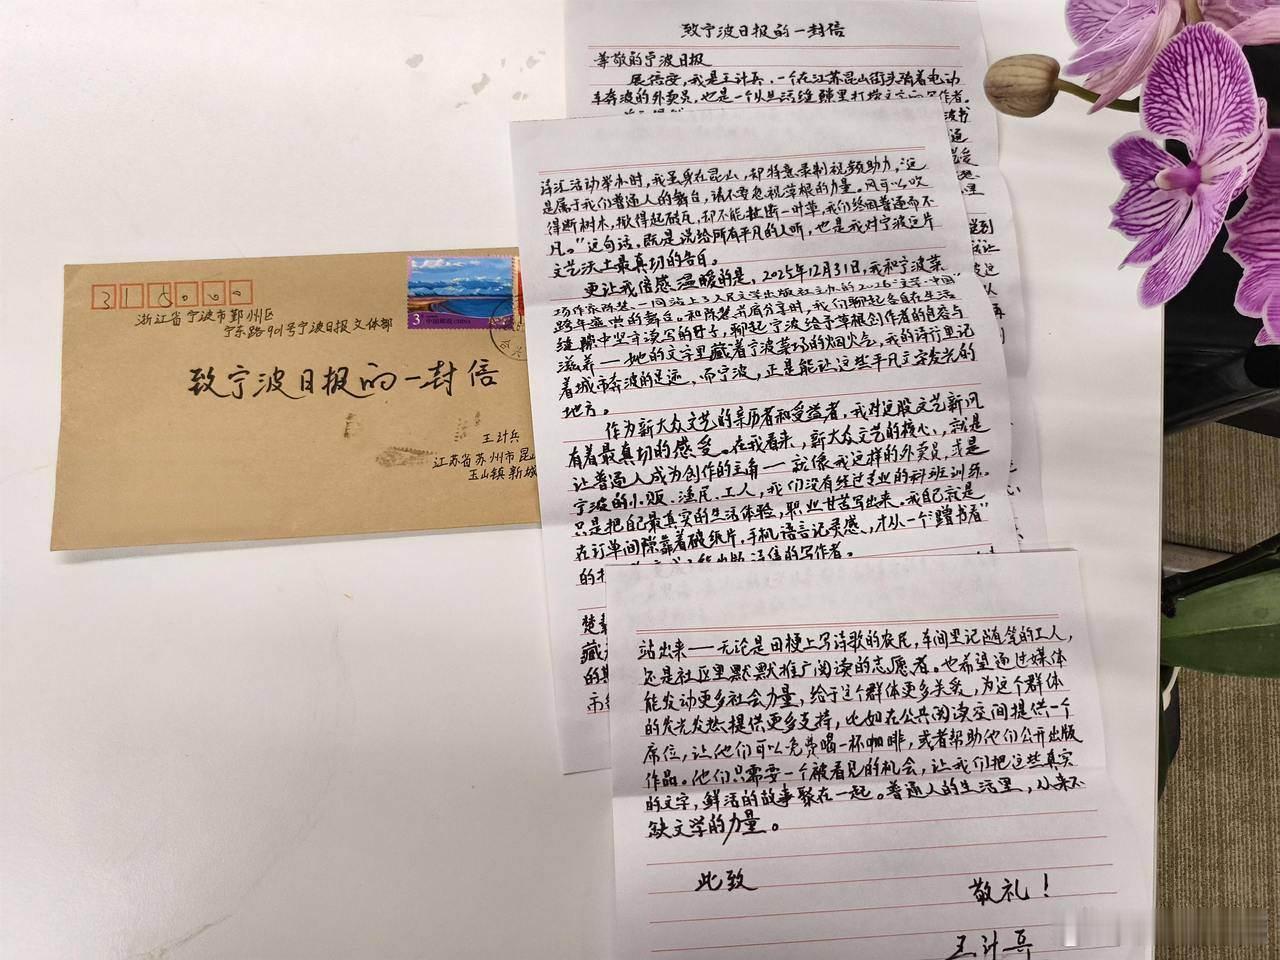 315000
浙江省宁波市鄞州区
宁东路901号宁波日报文体部
致宁波日报的一封信
王计兵
江苏省苏州市昆山
玉山镇新城
3
中国邮政 CHINA
致宁波日报的一封信
尊敬的宁波日报
展信安,我是王计兵,一个在江苏昆山街头骑着电动
车奔波的外卖员,也是一个从生活缝隙里打捞文字的写作者。
诗汇活动举办时,我虽身在昆山,却特意录制视频助力,“这
是属于我们普通人的舞台,请不要忽视草根的力量。风可以吹
得断树木,掀得起破瓦,却不能折断一叶草,我们终因普通而不
凡。”这句话,既是说给所有平凡的人听,也是我对宁波这片
文艺沃土最真切的告白。
更让我倍感温暖的是,2025年12月31日,我和宁波菜
场作家陈慧一同站上了人民文学出版社主办的“2026文学中国”
跨年盛典的舞台。和陈慧书底分享时,我们聊起各自在生活
缝隙中坚守读写的日子,聊起宁波给予草根创作者的包容与
滋养——她的文字里藏着宁波菜场的烟火气,我的诗行里记
着城市奔波的足迹,而宁波,正是能让这些平凡文字发光的
地方。
作为新大众文艺的亲历者和受益者,我对这股文艺新风
有着最真切的感受。在我看来,新大众文艺的核心,就是
让普通人成为创作的主角——就像我这样的外卖员,或是
宁波的小贩、渔民、工人,我们没有经过专业的科班训练。
只是把自己最真实的生活体验,职业甘苦写出来。我自己就是
在订单间隙靠着破纸片,手机语言记灵感,才从一个“蹭书看”
站出来——无论是田梗上写诗歌的农民,车间里记随笔的工人,
还是社区里默默推广阅读的志愿者。也希望通过媒体
能发动更多社会力量,给予这个群体更多关爱,为这个群体
的发光发热提供更多支持,比如在公共阅读空间提供一个
席位,让他们可以免费喝一杯咖啡,或者帮助他们公开出版
作品。他们只需要一个被看见的机会,让我们把这些真实
的文字,鲜活的故事聚在一起。普通人的生活里,从来不
缺文学的力量。
此致
敬礼!
王计兵